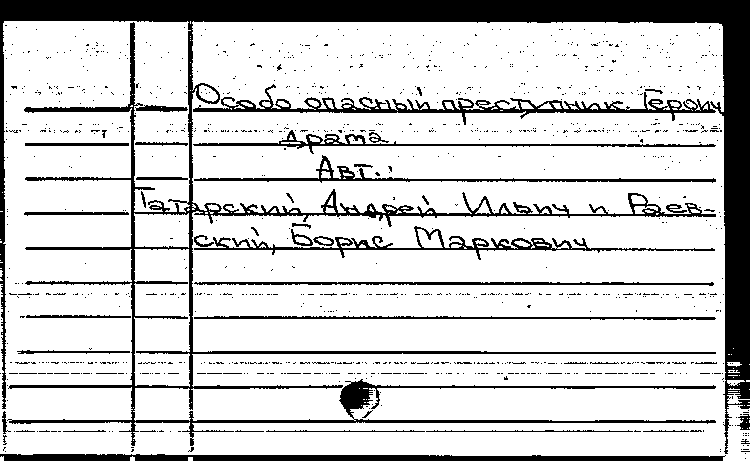 Особо опасный преступник. Героич
драма.
Авт.:
Татарский, Андрей Ильич и Раев-
ский, Борис Маркович